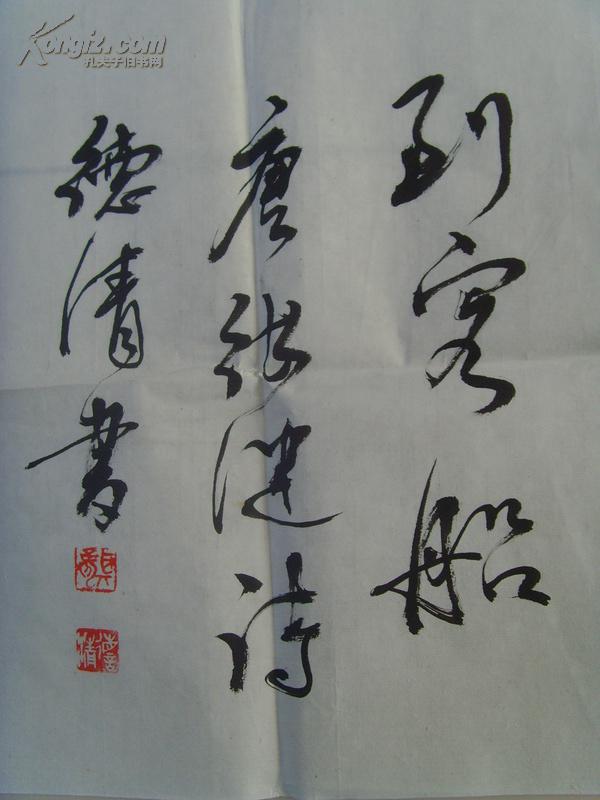 Kongfz.com
孔夫子旧书网
到客船
唐张继诗
德清書
德清